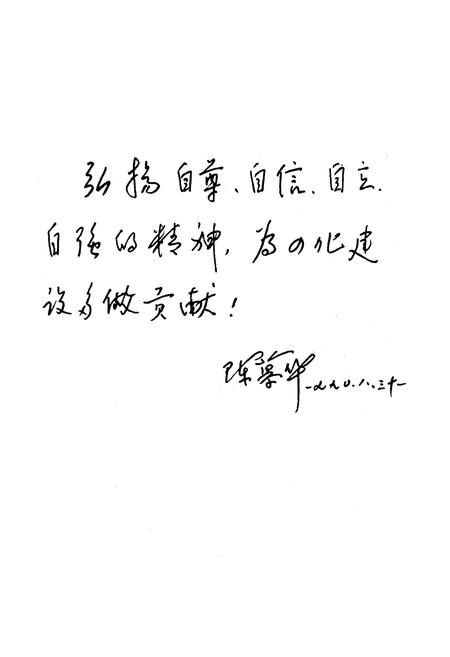 弘扬自尊、自信、自立、
自强的精神，为四化建
设多做贡献！
陈慕华 一九九〇.八.三十一